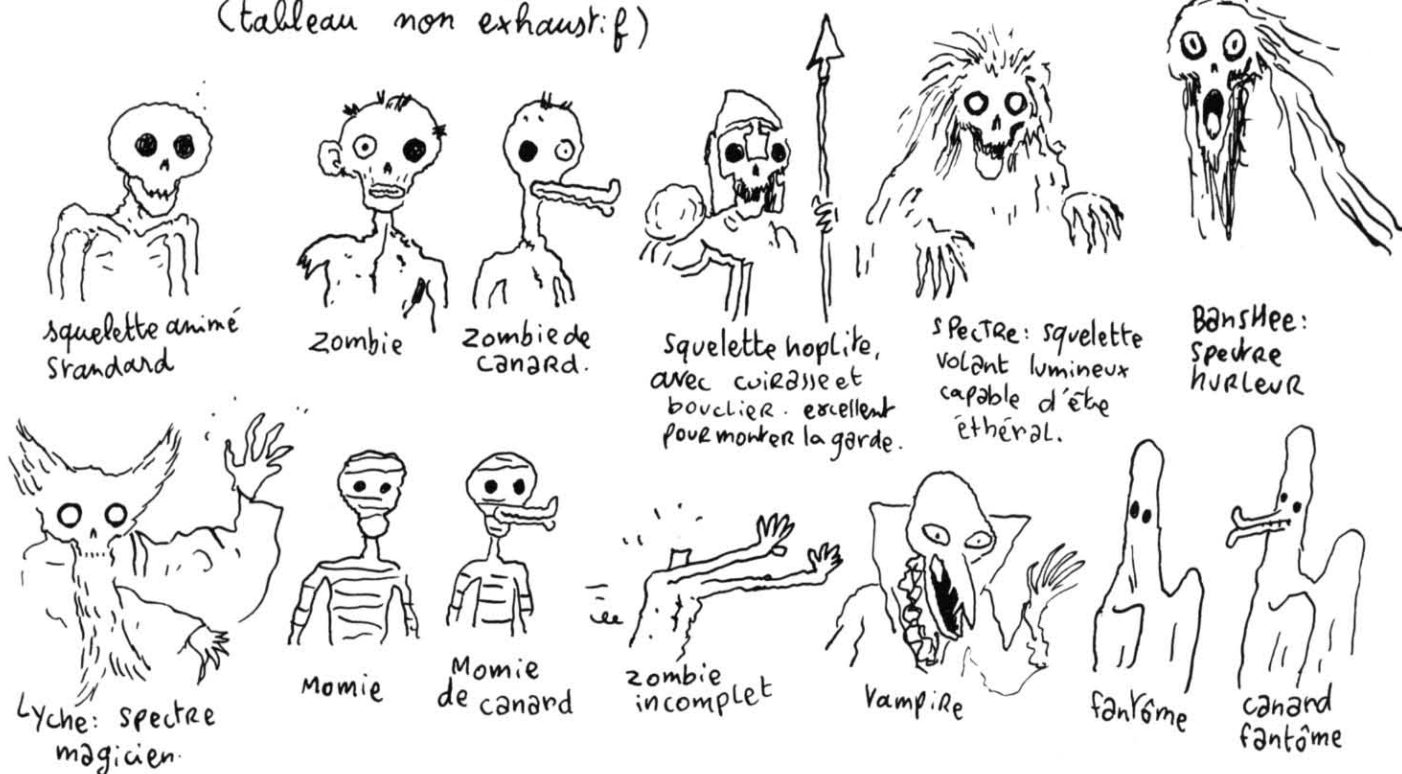 (tableau non exhaustif)
squelette animé
standard
zombie
zombie de
canard.
squelette hoplite,
avec cuirasse et
bouclier. excellent
pour monter la garde.
spectre: squelette
volant lumineux
capable d'être
éthéral.
Banshee:
spectre
hurleur
Lyche: spectre
magicien.
Momie
Momie
de canard
zombie
incomplet
vampire
fantôme
canard
fantôme